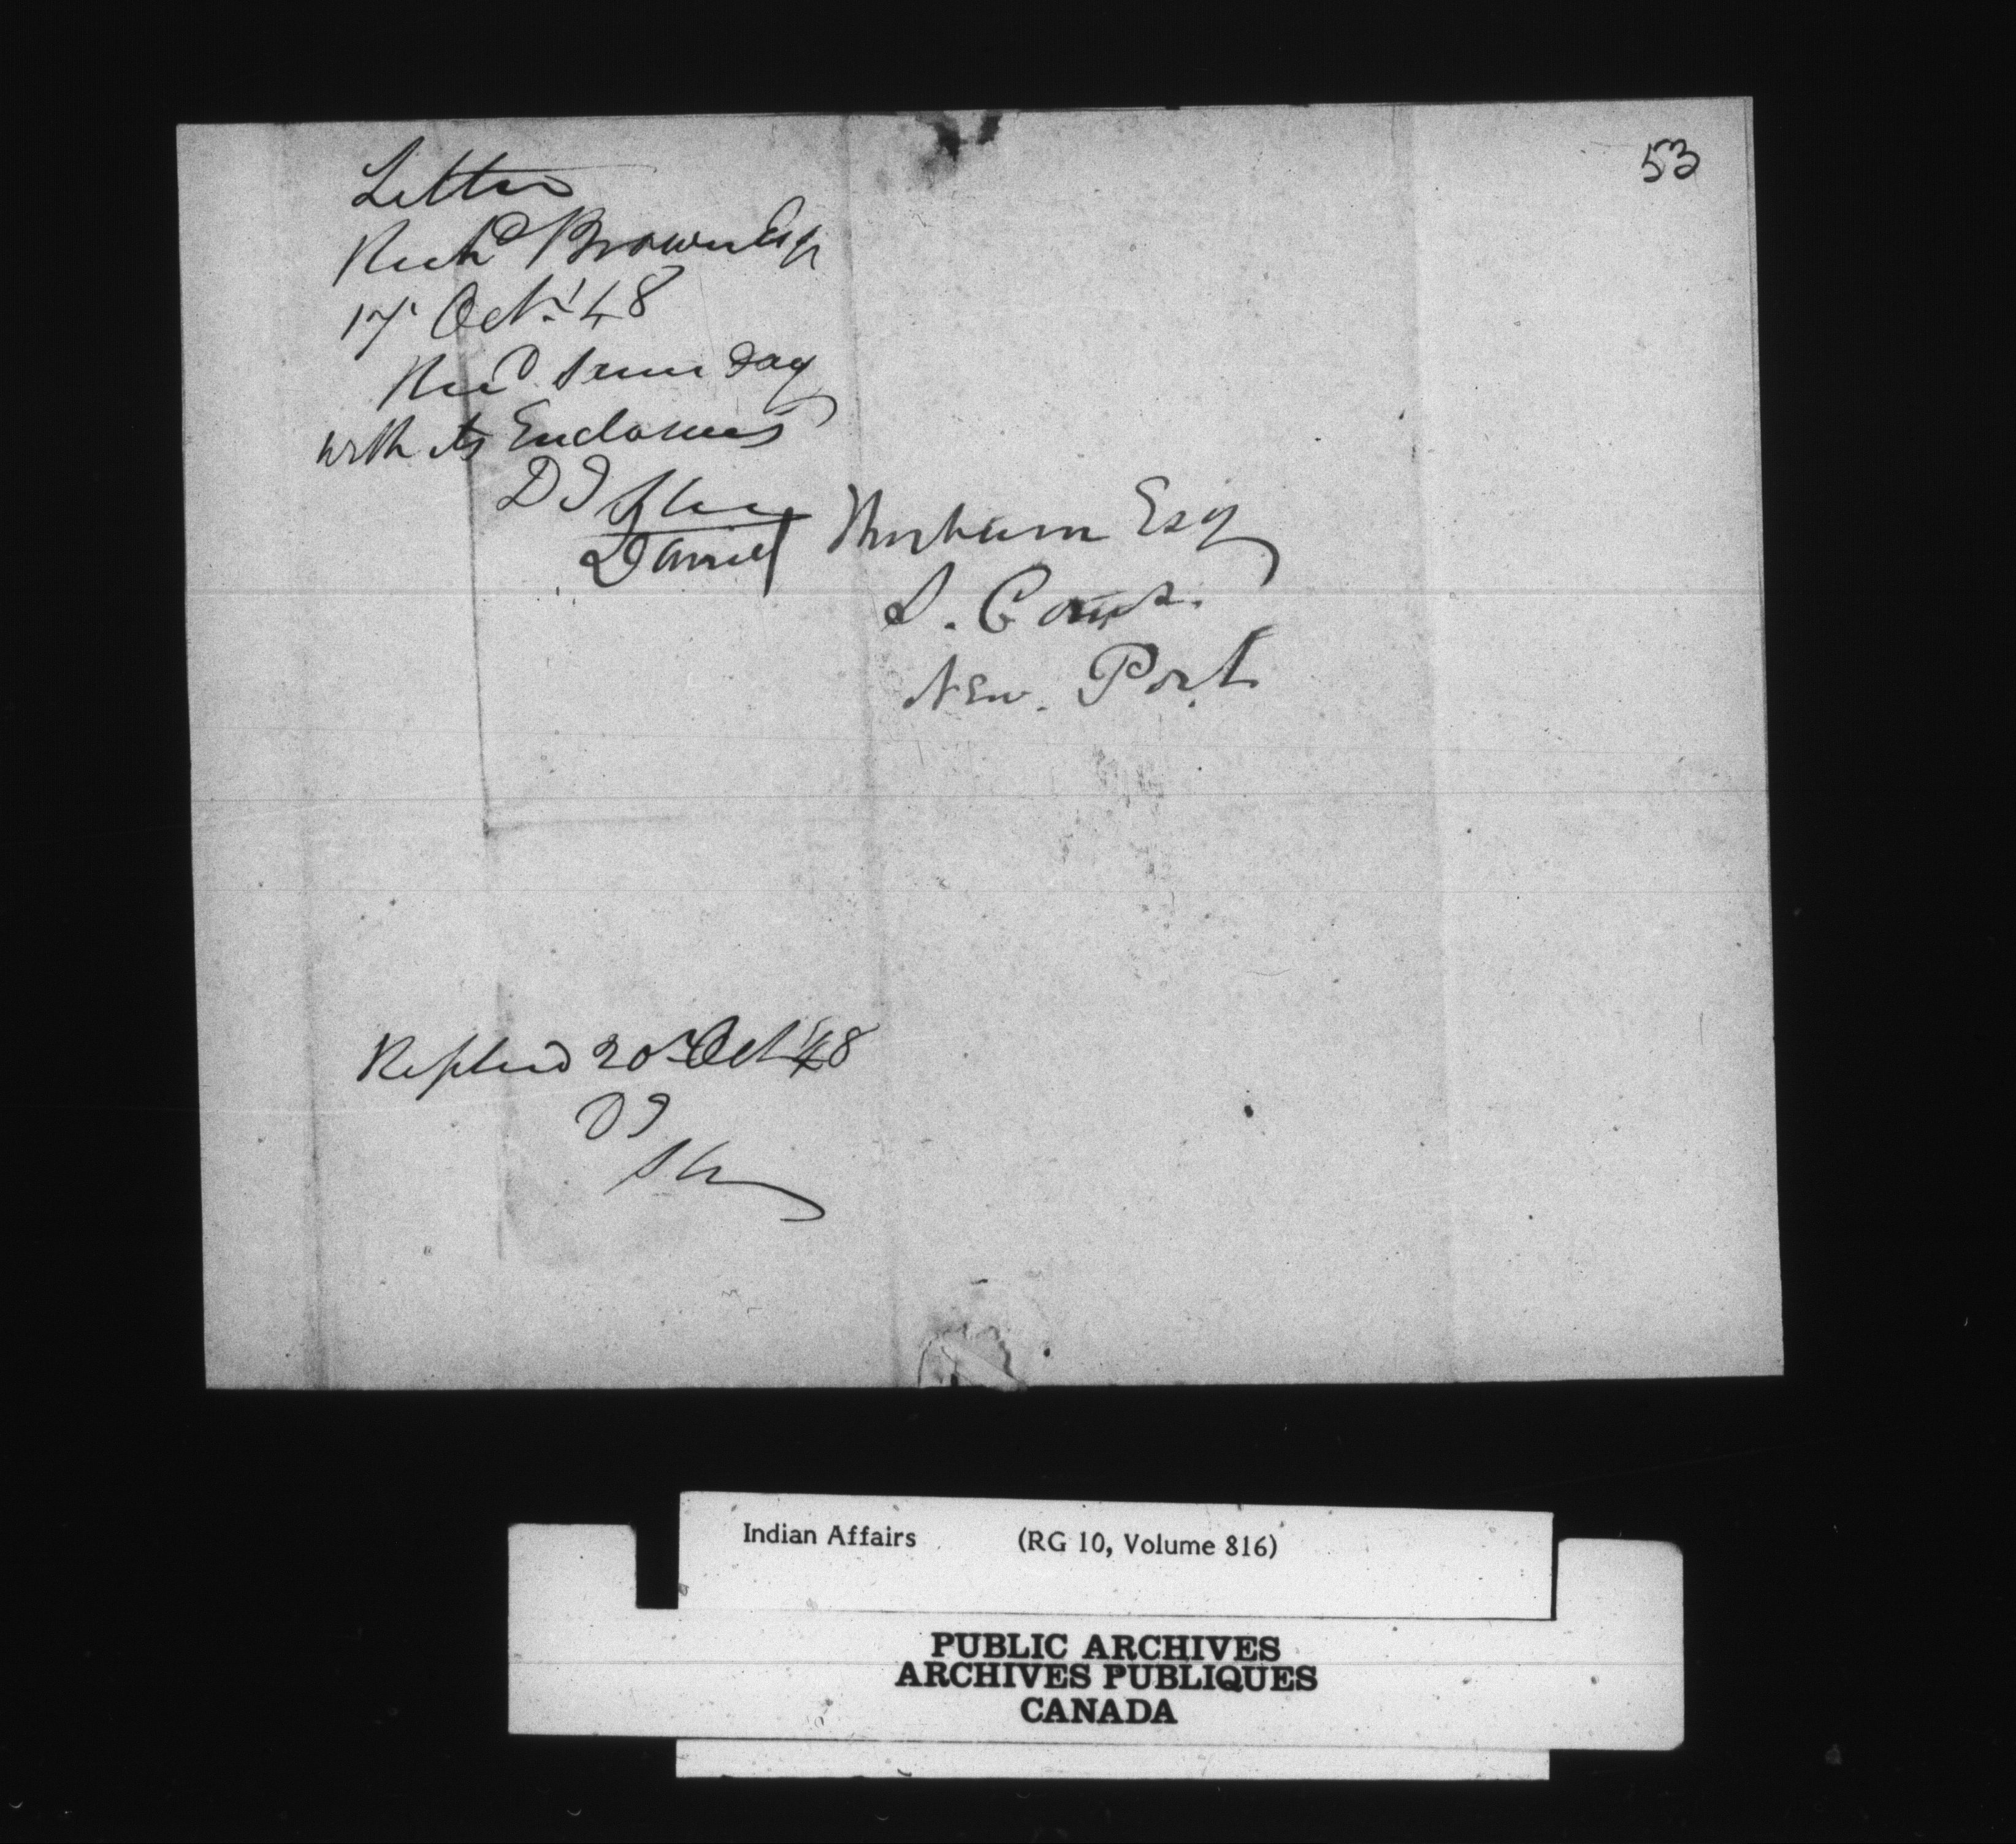 53
Letter
Richd Brown Esqr
17 Octr '48
Recd same day
with its Enclosures
DT
Daniel Thorburn Esq
S. Com
New. Port
Replied 20 Oct '48
DT
Indian Affairs (RG 10, Volume 816)
PUBLIC ARCHIVES
ARCHIVES PUBLIQUES
CANADA